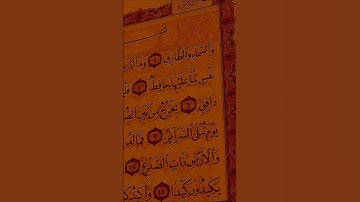 وَٱلسَّمَآءِ وَٱلطَّارِقِ ١ وَمَآ أَدْرَ
نَفْسٍ لَّمَّا عَلَيْهَا حَافِظٌ ٤
دَافِقٍ ٦ يَخْرُجُ مِنۢ بَيْنِ
يَوْمَ تُبْلَى ٱلسَّرَآئِرُ ٩ فَمَا لَهُۥ
وَٱلْأَرْضِ ذَاتِ ٱلصَّدْعِ ١٢
يَكِيدُونَ كَيْدًا ١٥ وَأَكِيدُ